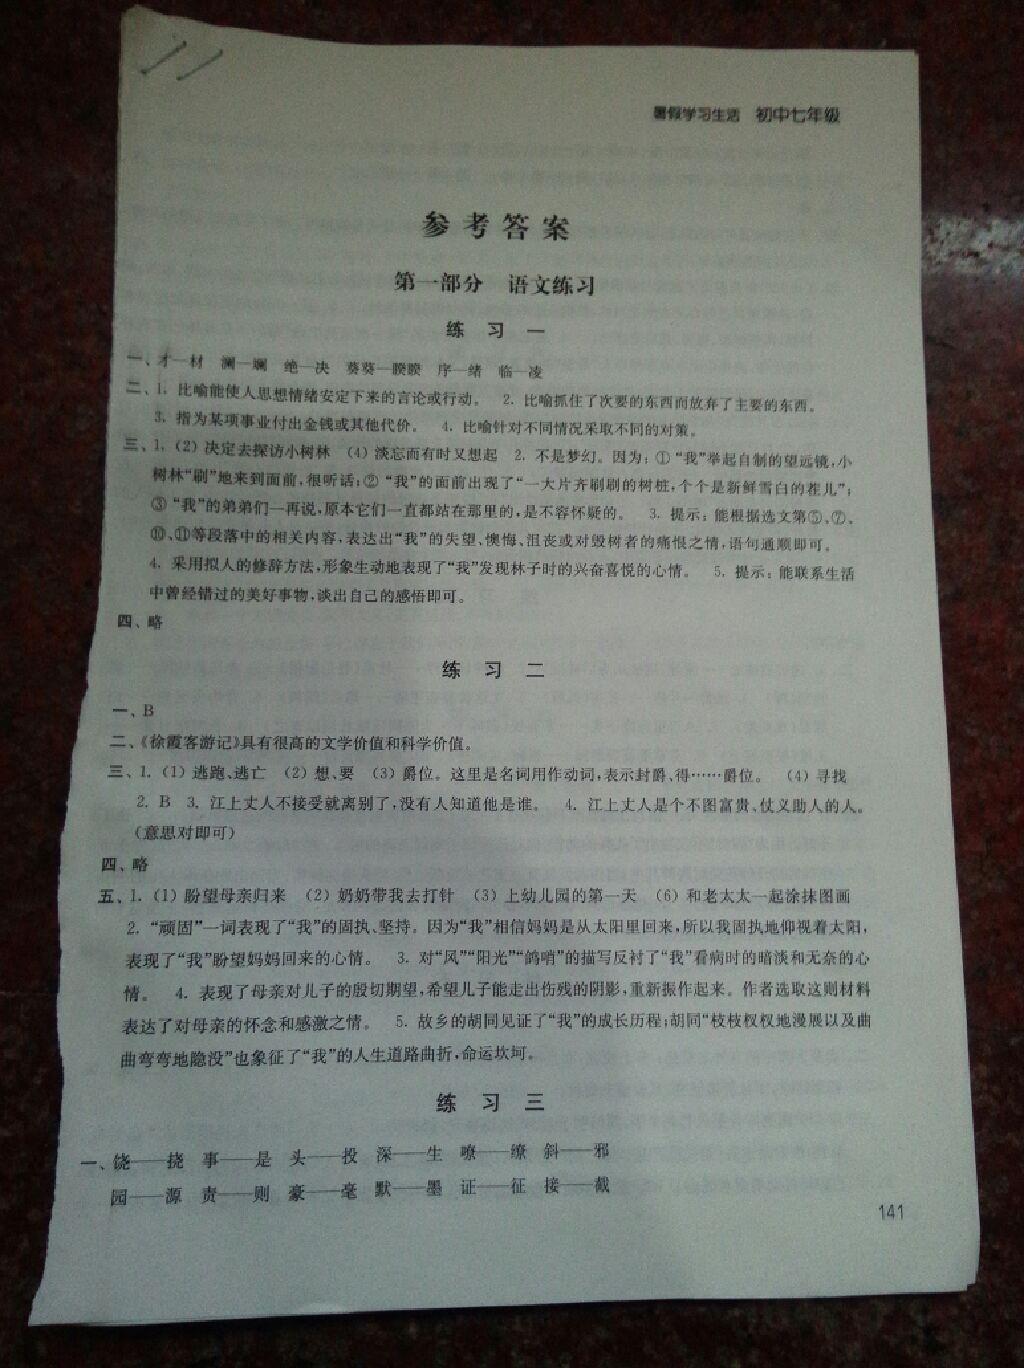 暑假学习生活 初中七年级
参考答案
第一部分 语文练习
练 习 一
一、才—材 澜—斓 绝—决 葵葵—睽睽 序—绪 临—凌
二、1. 比喻能使人思想情绪安定下来的言论或行动。 2. 比喻抓住了次要的东西而放弃了主要的东西。
3. 指为某项事业付出金钱或其他代价。 4. 比喻针对不同情况采取不同的对策。
三、1.（2）决定去探访小树林 （4）淡忘而有时又想起 2. 不是梦幻。因为：①“我”举起自制的望远镜，小
树林“刷”地来到面前，很听话；②“我”的面前出现了“一大片齐刷刷的树桩，个个是新鲜雪白的茬儿”；
③“我”的弟弟们一再说，原本它们一直都站在那里的，是不容怀疑的。 3. 提示：能根据选文第⑤、⑦、
⑩、⑪等段落中的相关内容，表达出“我”的失望、懊悔、沮丧或对毁树者的痛恨之情，语句通顺即可。
4. 采用拟人的修辞方法，形象生动地表现了“我”发现林子时的兴奋喜悦的心情。 5. 提示：能联系生活
中曾经错过的美好事物，谈出自己的感悟即可。
四、略
练 习 二
一、B
二、《徐霞客游记》具有很高的文学价值和科学价值。
三、1.（1）逃跑、逃亡 （2）想、要 （3）爵位。这里是名词用作动词，表示封爵、得……爵位。 （4）寻找
2. B 3. 江上丈人不接受就离别了，没有人知道他是谁。 4. 江上丈人是个不图富贵、仗义助人的人。
（意思对即可）
四、略
五、1.（1）盼望母亲归来 （2）奶奶带我去打针 （3）上幼儿园的第一天 （6）和老太太一起涂抹图画
2. “顽固”一词表现了“我”的固执、坚持。因为“我”相信妈妈是从太阳里回来，所以我固执地仰视着太阳，
表现了“我”盼望妈妈回来的心情。 3. 对“风”“阳光”“鸽哨”的描写反衬了“我”看病时的暗淡和无奈的心
情。 4. 表现了母亲对儿子的殷切期望，希望儿子能走出伤残的阴影，重新振作起来。作者选取这则材料
表达了对母亲的怀念和感激之情。 5. 故乡的胡同见证了“我”的成长历程；胡同“枝枝杈杈地漫展以及曲
曲弯弯地隐没”也象征了“我”的人生道路曲折，命运坎坷。
练 习 三
一、饶——挠 事——是 头——投 深——生 嘹——缭 斜——邪
园——源 责——则 豪——毫 默——墨 证——征 接——截
141